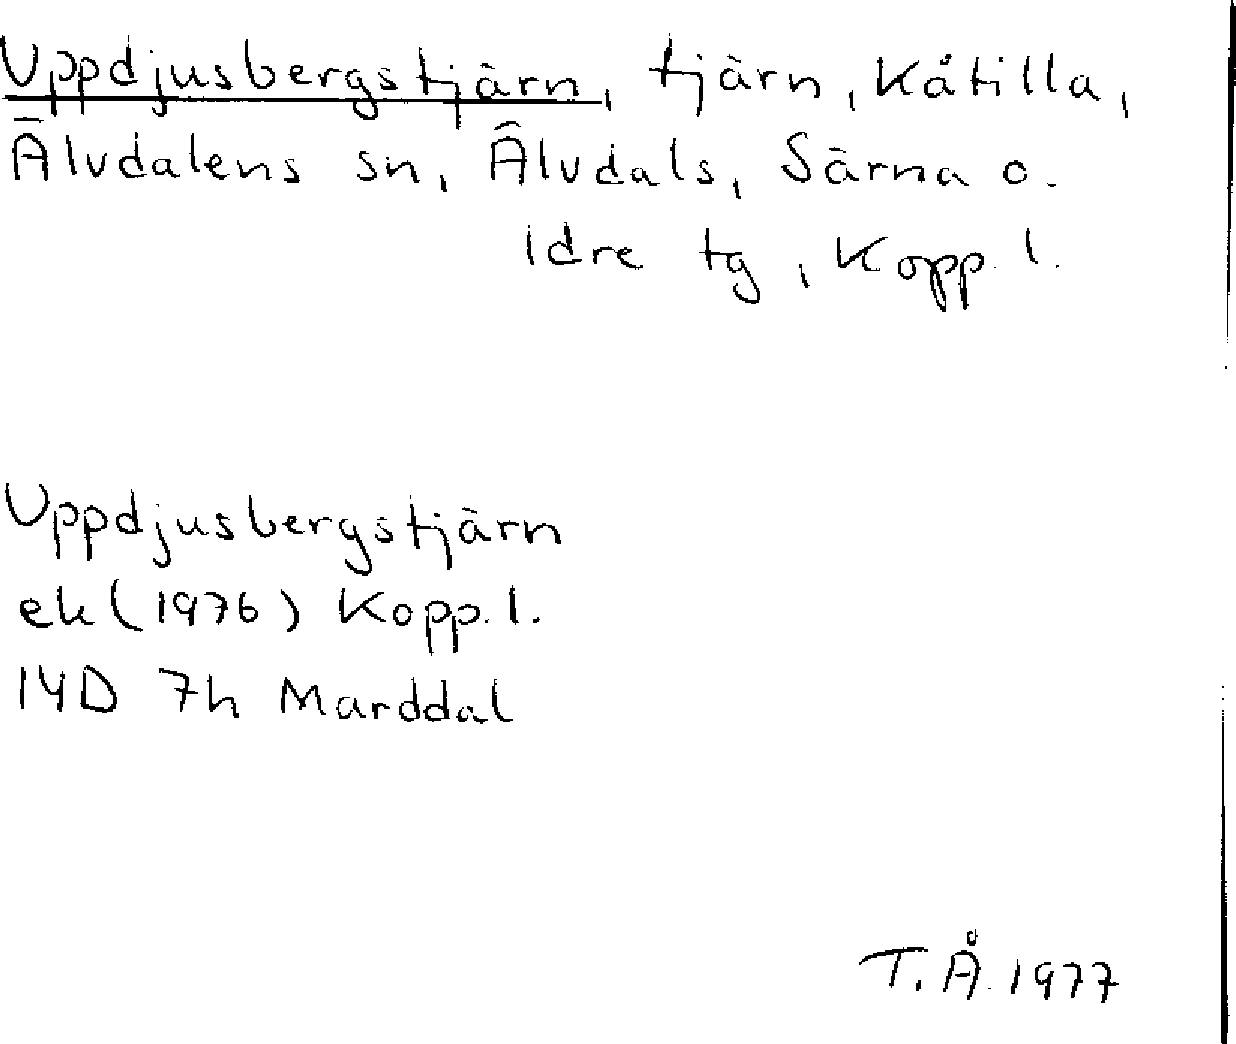 Uppdjusbergstjärn, tjärn, Kåtilla,
Älvdalens sn, Älvdals, Särna o.
Idre tg, Kopp. l.
Uppdjusbergstjärn
ek (1976) Kopp. l.
14D 7h Marddal
T. Å. 1977